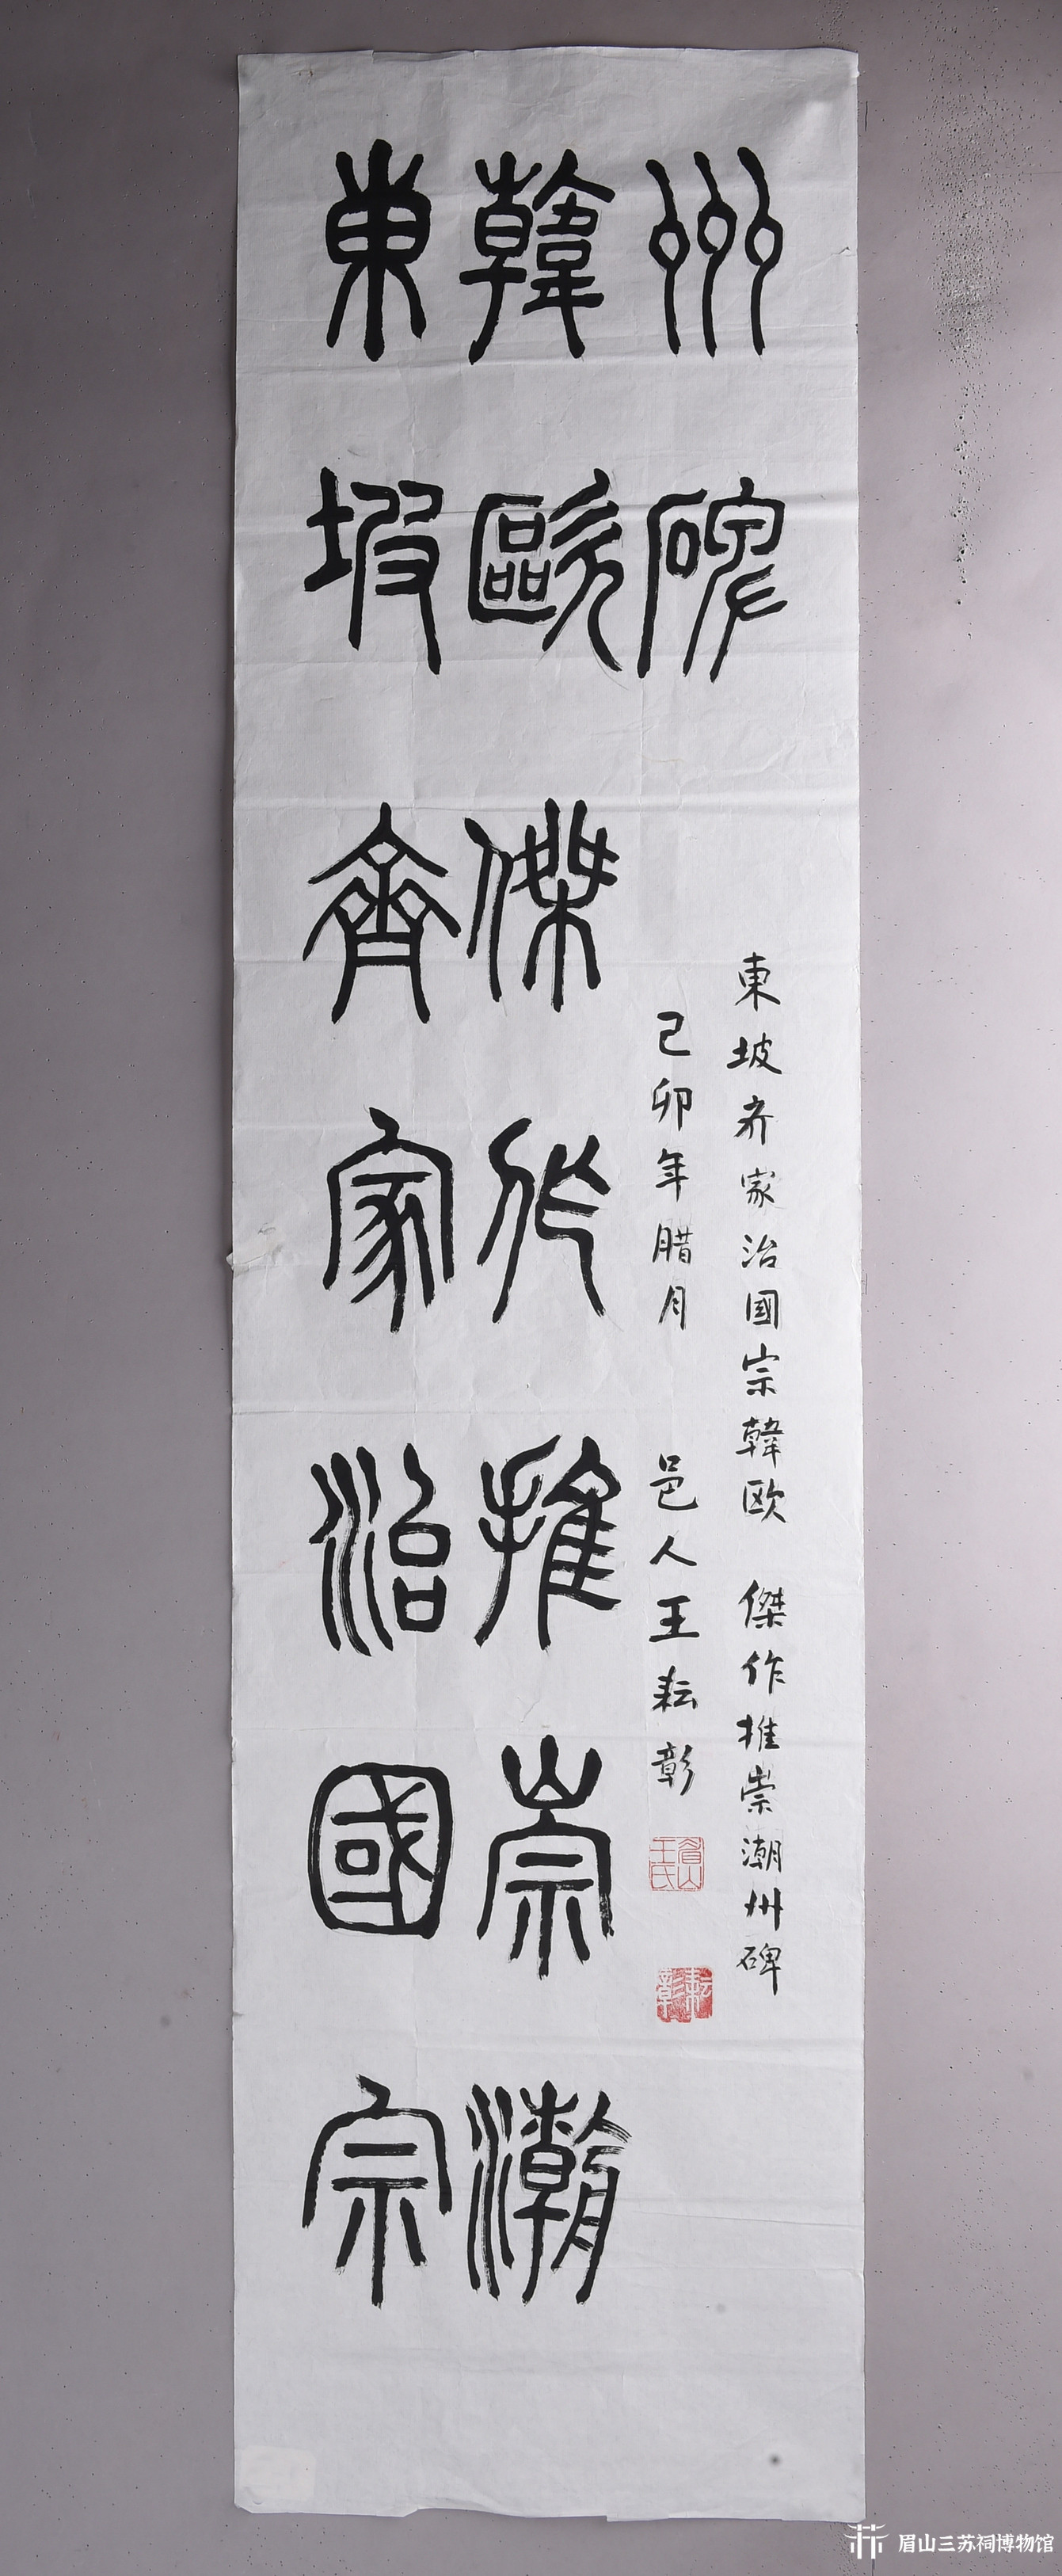 東坡齊家治國宗
韓歐傑作推崇潮
州碑
東坡齐家治國宗韓欧 傑作推崇潮州碑
己卯年腊月 邑人王耘彰
眉山王氏
耘彰
眉山三苏祠博物馆